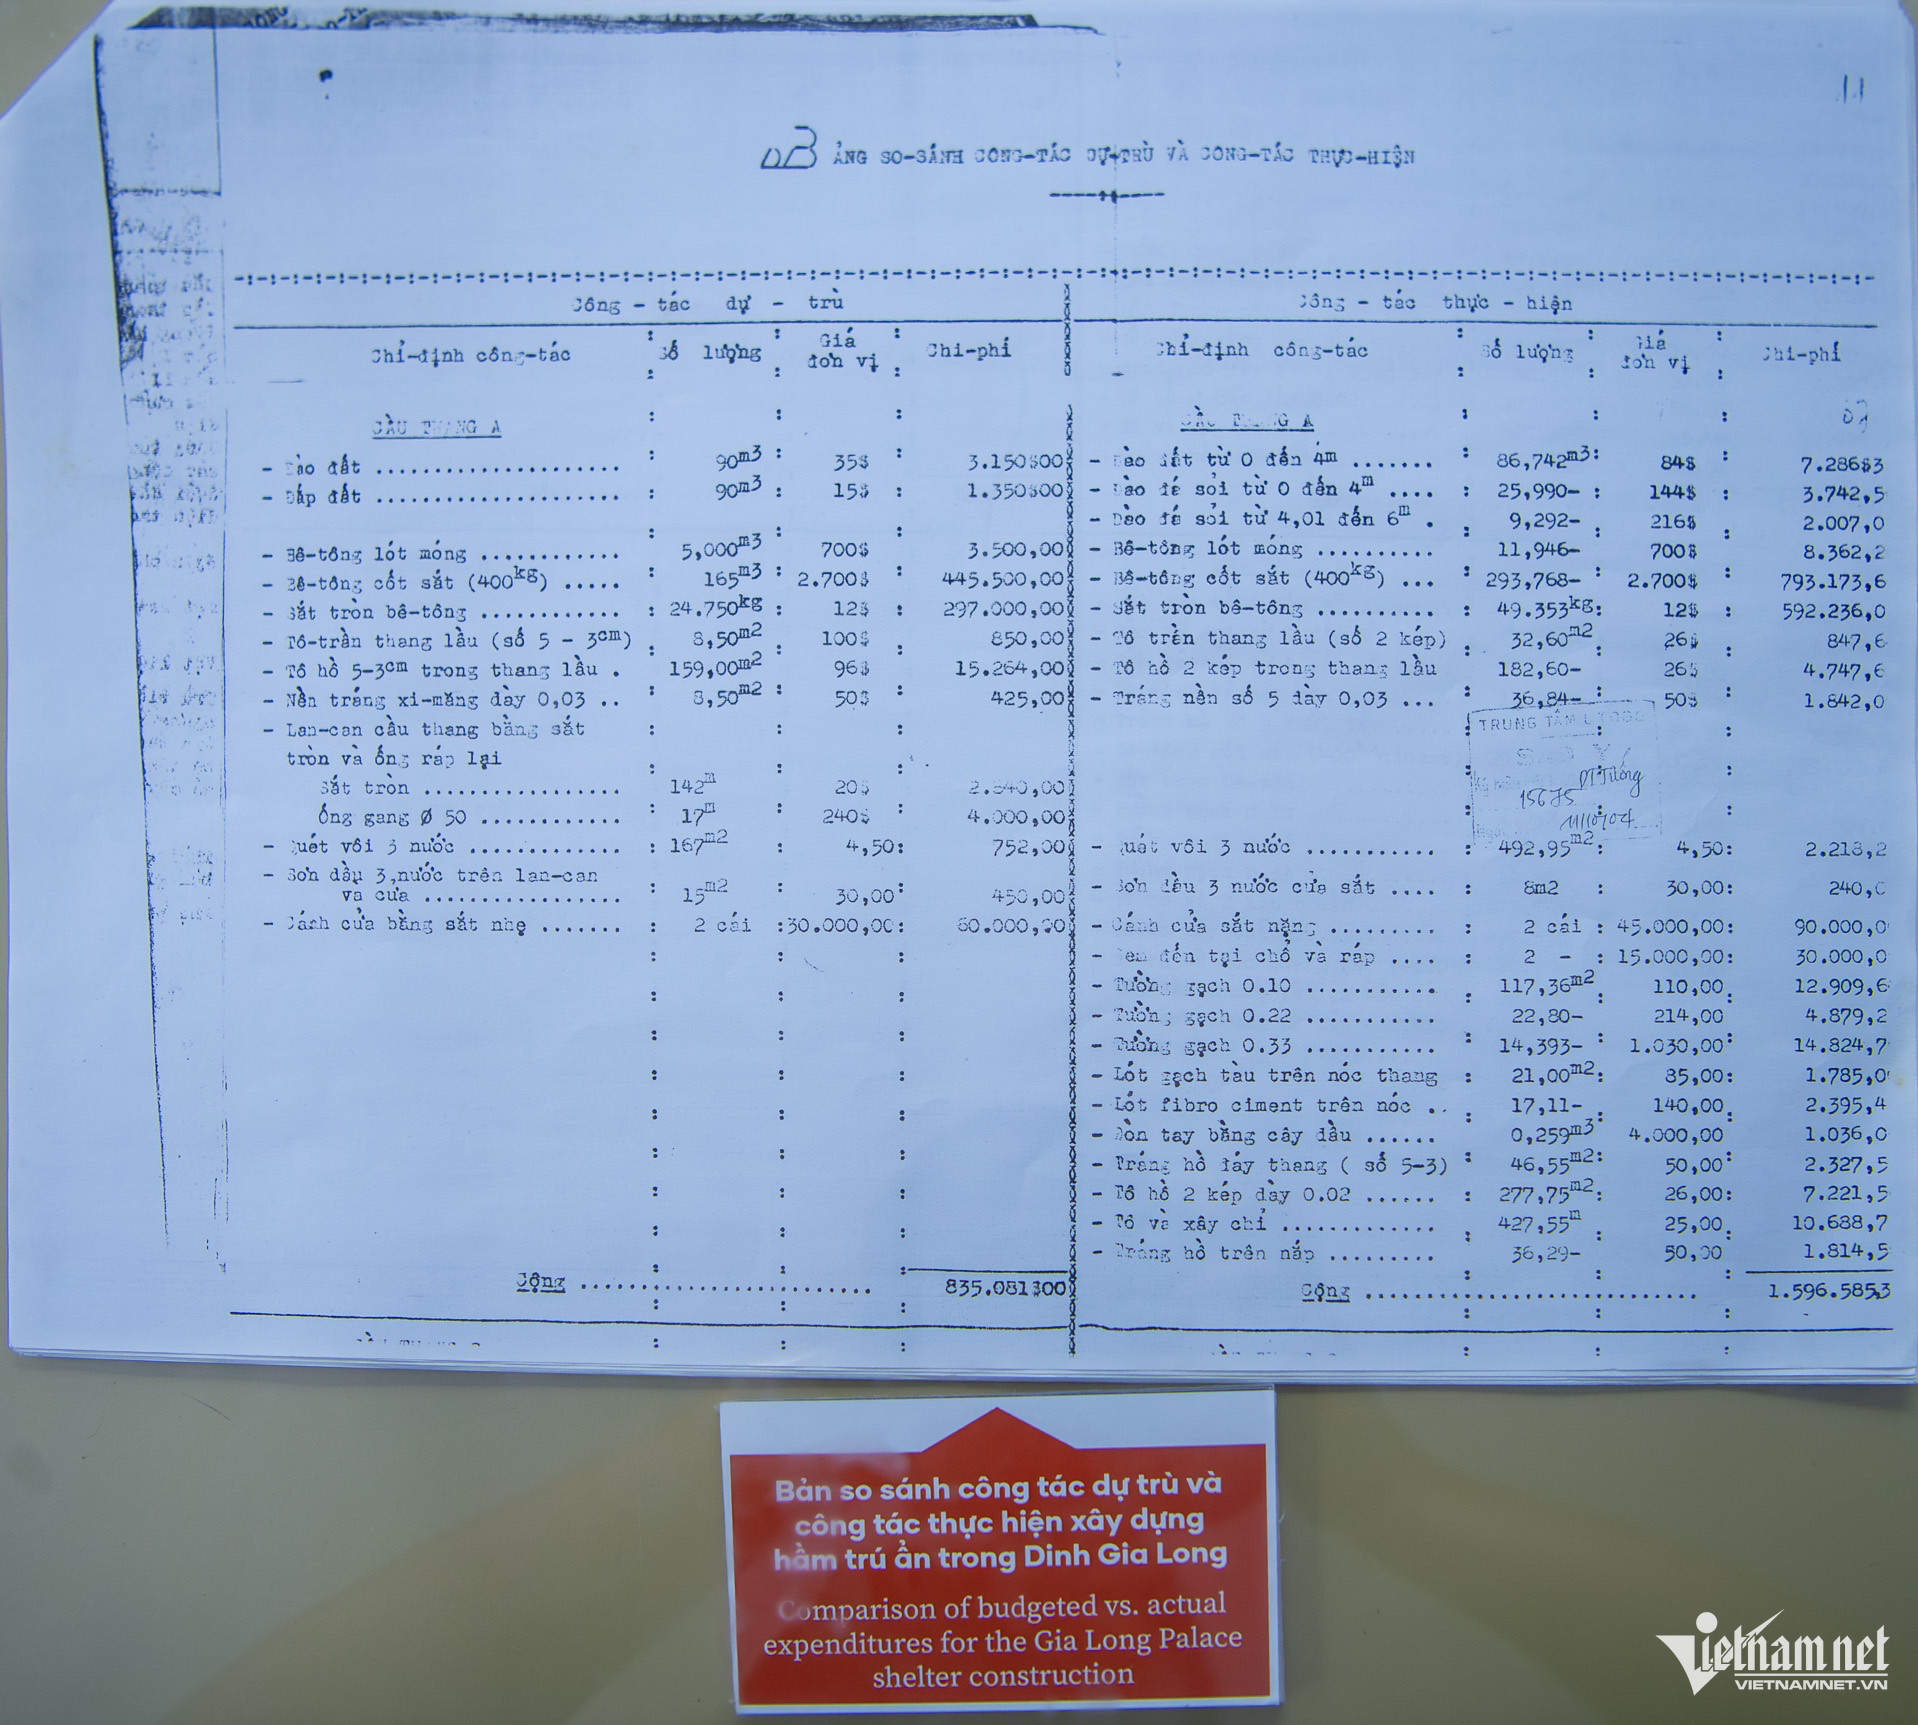 11
BẢNG SO-SÁNH CÔNG-TÁC DỰ-TRÙ VÀ CÔNG-TÁC THỰC-HIỆN
Công - tác dự - trù
Chỉ-định công-tác : Số lượng : Giá đơn vị : Chi-phí
CẦU THANG A
- Đào đất ...................... : 90m3 : 35$ : 3.150$00
- Đắp đất ...................... : 90m3 : 15$ : 1.350$00
- Bê-tông lót móng ............ : 5,000m3 : 700$ : 3.500,00
- Bê-tông cốt sắt (400kg) ..... : 165m3 : 2.700$ : 445.500,00
- Sắt tròn bê-tông ............ : 24.750kg : 12$ : 297.000,00
- Tô-trần thang lầu (số 5 - 3cm) : 8,50m2 : 100$ : 850,00
- Tô hồ 5-3cm trong thang lầu . : 159,00m2 : 96$ : 15.264,00
- Nền tráng xi-măng dày 0,03 .. : 8,50m2 : 50$ : 425,00
- Lan-can cầu thang bằng sắt
tròn và ống ráp lại
Sắt tròn .................. : 142m : 20$ : 2.840,00
ống gang Ø 50 ............ : 17m : 240$ : 4.000,00
- Quét vôi 3 nước ............. : 167m2 : 4,50 : 752,00
- Sơn dầu 3 nước trên lan-can
và cửa .................. : 15m2 : 30,00 : 450,00
- Cánh cửa bằng sắt nhẹ ....... : 2 cái : 30.000,00 : 60.000,00
Cộng .......................... 835.081$00
Công - tác thực - hiện
Chỉ-định công-tác : Số lượng : Giá đơn vị : Chi-phí
CẦU THANG A
- Đào đất từ 0 đến 4m ....... : 86,742m3 : 84$ : 7.286$3
- Đào đá sỏi từ 0 đến 4m .... : 25,990- : 144$ : 3.742,5
- Đào đá sỏi từ 4,01 đến 6m . : 9,292- : 216$ : 2.007,0
- Bê-tông lót móng .......... : 11,946- : 700$ : 8.362,2
- Bê-tông cốt sắt (400kg) ... : 293,768- : 2.700$ : 793.173,6
- Sắt tròn bê-tông .......... : 49.353kg : 12$ : 592.236,0
- Tô trần thang lầu (số 2 kép) : 32,60m2 : 26$ : 847,6
- Tô hồ 2 kép trong thang lầu : 182,60- : 26$ : 4.747,6
- Tráng nền số 5 dày 0,03 ... : 36,84- : 50$ : 1.842,0
TRUNG TÂM LTQG
15675
11/10/04
- Quét vôi 3 nước ........... : 492,95m2 : 4,50 : 2.218,2
- Sơn dầu 3 nước cửa sắt .... : 8m2 : 30,00 : 240,0
- Cánh cửa sắt nặng ......... : 2 cái : 45.000,00 : 90.000,0
- Đem đến tại chổ và ráp .... : 2 - : 15.000,00 : 30.000,0
- Tường gạch 0.10 ........... : 117,36m2 : 110,00 : 12.909,6
- Tường gạch 0.22 ........... : 22,80- : 214,00 : 4.879,2
- Tường gạch 0.33 ........... : 14,393- : 1.030,00 : 14.824,7
- Lót gạch tàu trên nóc thang : 21,00m2 : 85,00 : 1.785,0
- Lót fibro ciment trên nóc .. : 17,11- : 140,00 : 2.395,4
- Đòn tay bằng cây dầu ...... : 0,259m3 : 4.000,00 : 1.036,0
- Tráng hồ đáy thang ( số 5-3) : 46,55m2 : 50,00 : 2.327,5
- Tô hồ 2 kép dày 0.02 ...... : 277,75m2 : 26,00 : 7.221,5
- Tô và xây chỉ ............. : 427,55m : 25,00 : 10.688,7
- Tráng hồ trên nắp ......... : 36,29- : 50,00 : 1.814,5
Cộng .............................. 1.596.585,3
Bản so sánh công tác dự trù và
công tác thực hiện xây dựng
hầm trú ẩn trong Dinh Gia Long
Comparison of budgeted vs. actual
expenditures for the Gia Long Palace
shelter construction
Vietnamnet
VIETNAMNET.VN